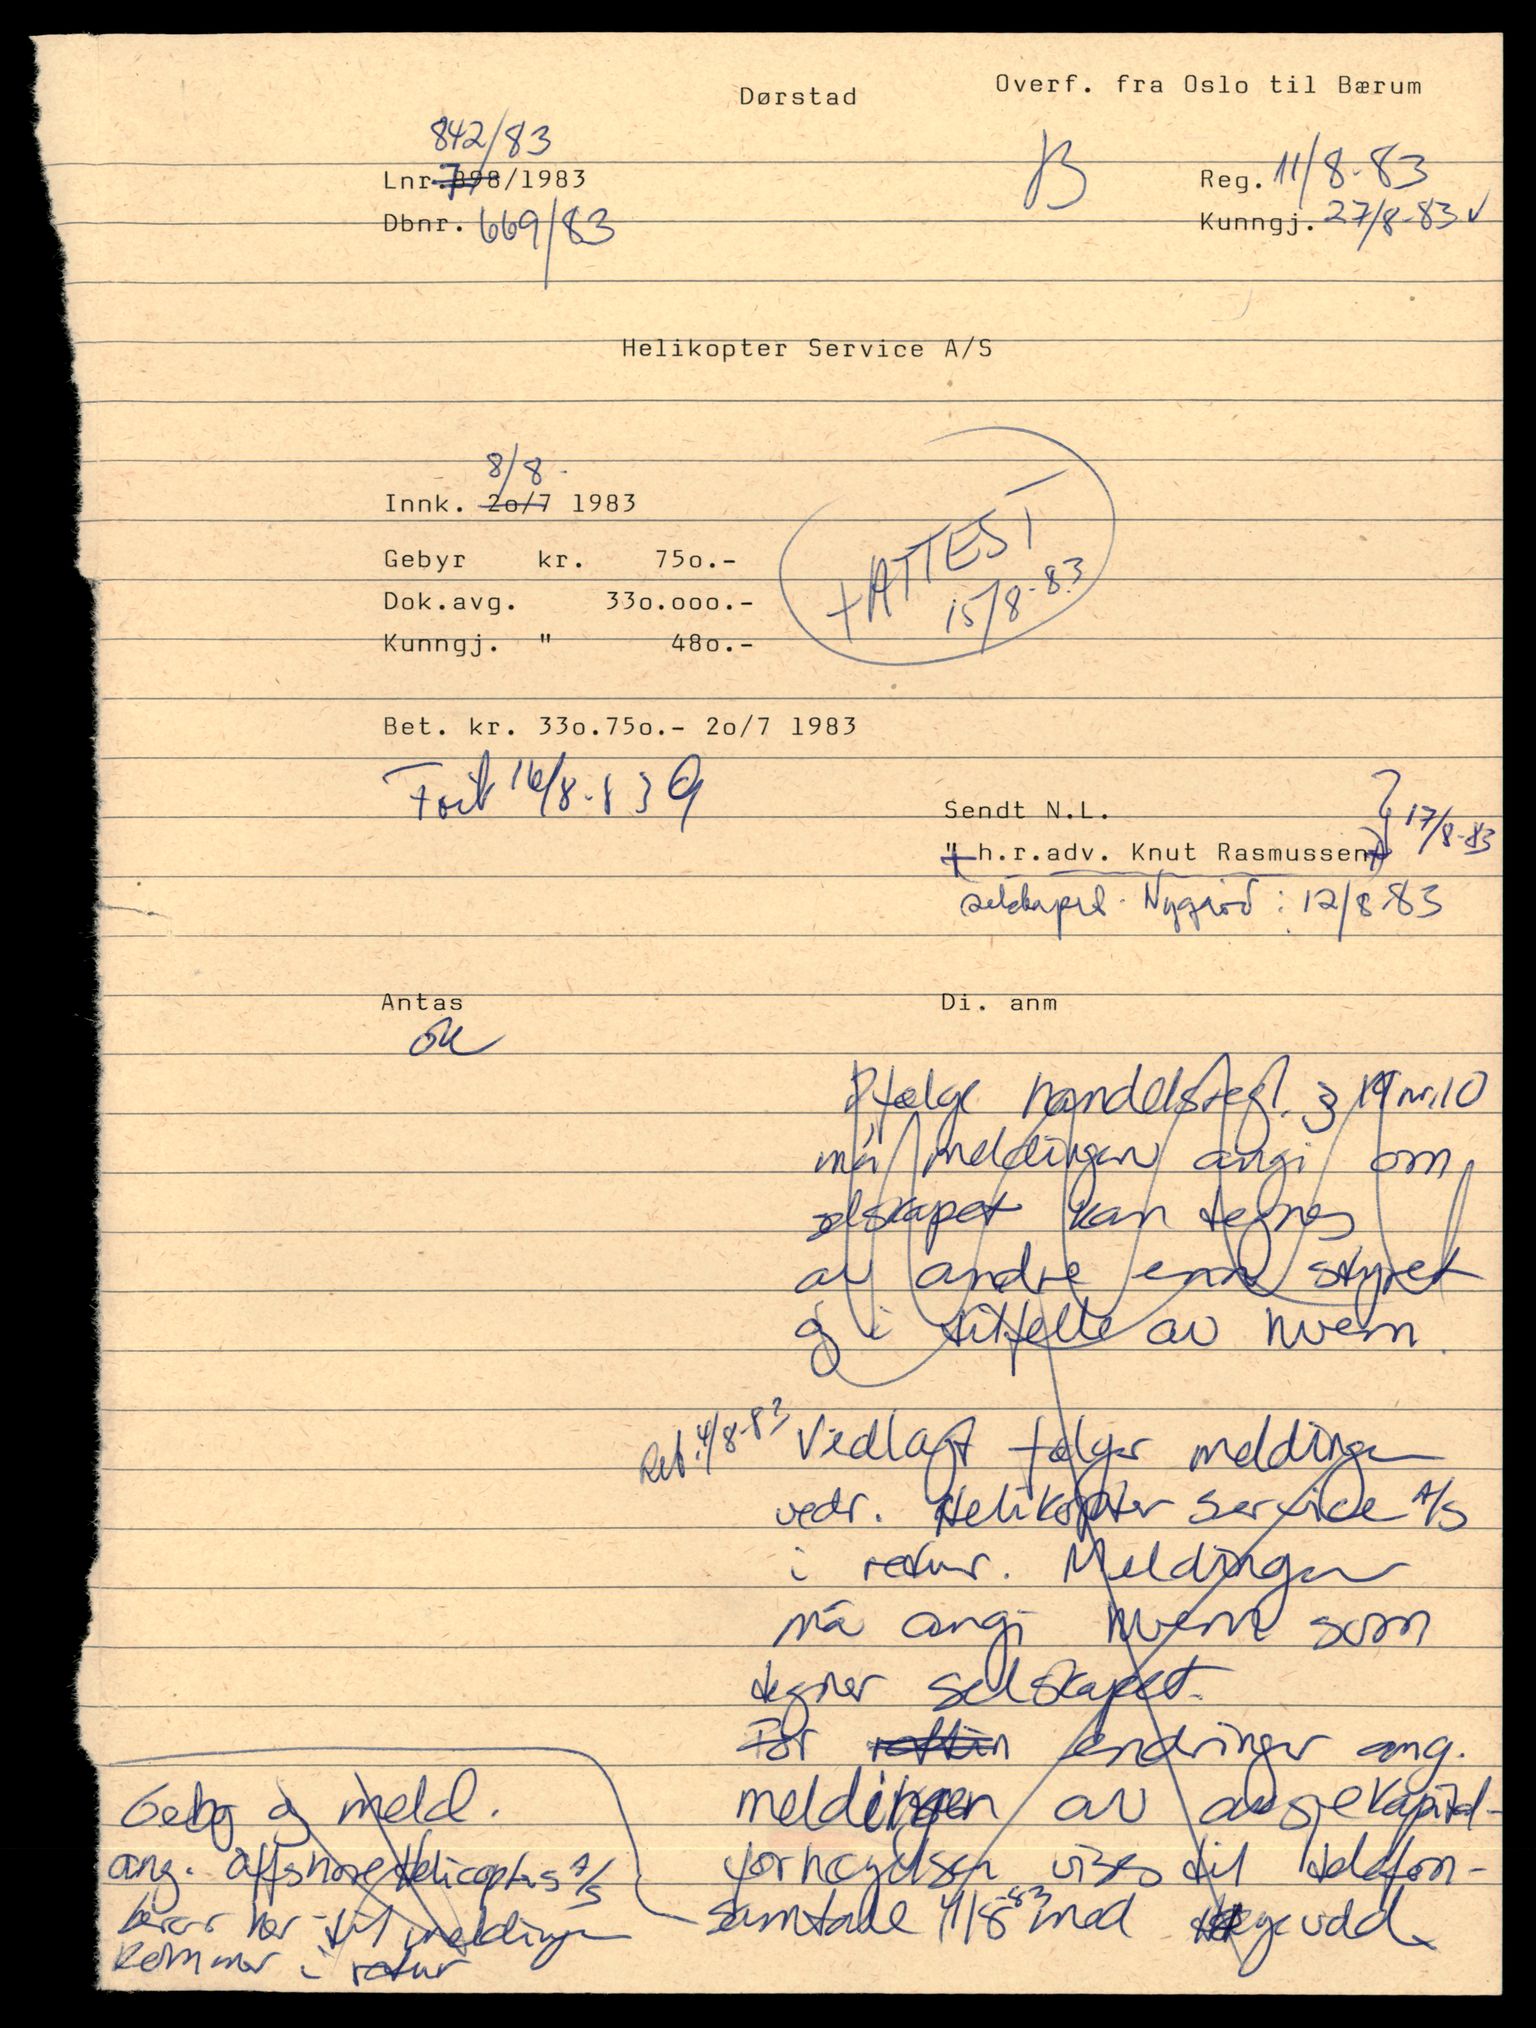 Dørstad
Overf. fra Oslo til Bærum
842/83
Lnr. 798/1983
Reg. 11/8-83
Dbnr. 669/83
Kunngj. 27/8-83 ✓
Helikopter Service A/S
8/8-
Innk. 2o/7 1983
Gebyr kr. 75o.-
Dok.avg. 33o.ooo.-
Kunngj. " 48o.-
+ ATTEST
15/8-83
Bet. kr. 33o.75o.- 2o/7 1983
16/8-83
Sendt N.L.
" h.r.adv. Knut Rasmussen
17/8-83
Nygård : 12/8-83
Antas
Di. anm
ok
Ifølge handelsregl. § 19 nr. 10
må meldingen angi om
selskapet kan tegnes
av andre enn styret
og i tilfelle av hvem.
Ret. 4/8-83 Vedlagt følger meldingen
vedr. Helikopter Service A/S
i retur. Meldingen
må angi hvem som
tegner selskapet.
For endringer ang.
meldingen av aksjekapital-
forhøyelsen vises til telefon-
samtale 4/8-83 med
Gebyr og meld.
ang. Offshore Helicopters A/S
beror her til meldingen
kommer i retur